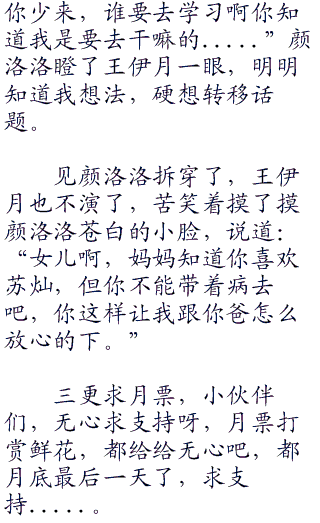 你少来，谁要去学习啊你知
道我是要去干嘛的.....”颜
洛洛瞪了王伊月一眼，明明
知道我想法，硬想转移话
题。
见颜洛洛拆穿了，王伊
月也不演了，苦笑着摸了摸
颜洛洛苍白的小脸，说道：
“女儿啊，妈妈知道你喜欢
苏灿，但你不能带着病去
吧，你这样让我跟你爸怎么
放心的下。”
三更求月票，小伙伴
们，无心求支持呀，月票打
赏鲜花，都给给无心吧，都
月底最后一天了，求支
持.....。